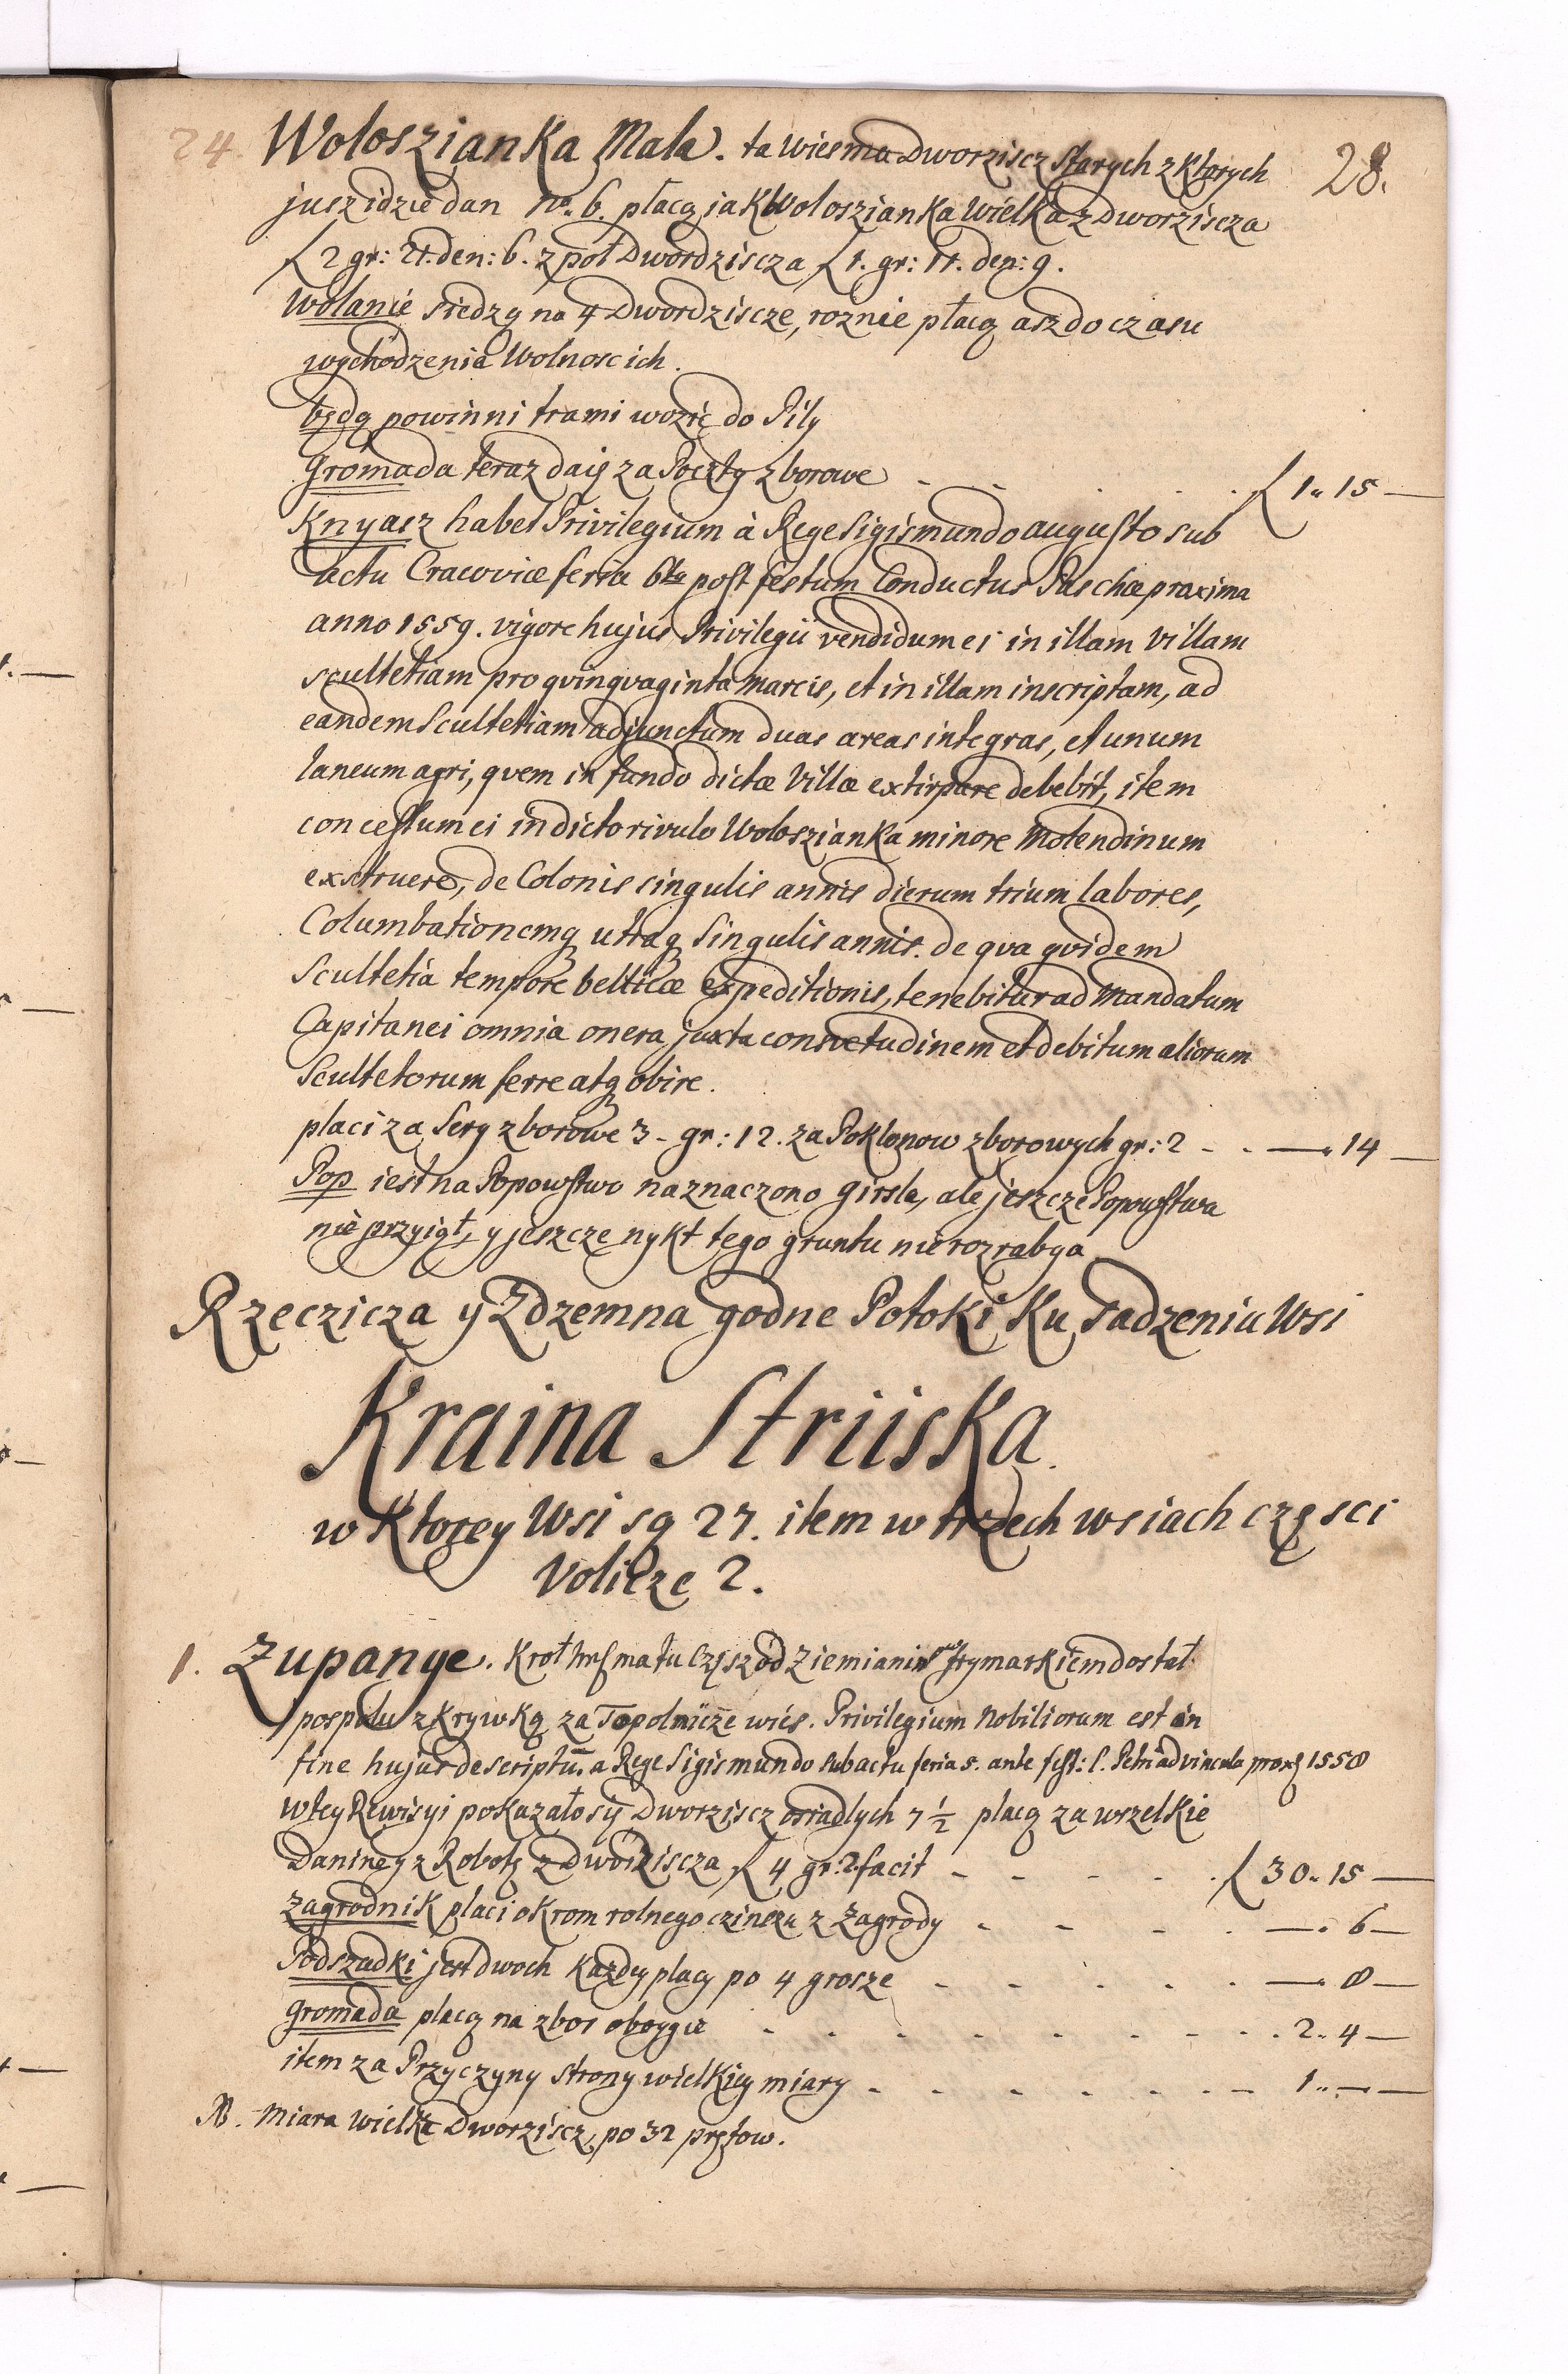 28.
24. Woloszianka Mala. ta Wies ma Dworziscz starych z ktorych
jusz idzie dan No. 6. płacą jak Woloszianka Wielka z Dworziscza
f 2 gr: 21. den: 6. z poł Dwordziscza f 1. gr: 11. den: 9.
Wolanie siedzą na 4 Dwordziscze, roznie płacą asz do czasu
wychodzenia Wolnosc ich.
będą powinni trami wozić do Piły
Gromada teraz daię za Poczty zborowe - - - - f 1" 15 —
Knyasz habet Privilegium à Rege Sigismundo augusto sub
actu Cracoviæ feria 6ta post festum Conductus Paschæ proxima
anno 1559. vigore hujus Privilegii vendidum ei in illam villam
scultetiam pro qvinqvaginta Marcis, et in illam inscriptam, ad
eandem Scultetiam adjunctum duas areas integras, et unum
laneum agri, qvem in fundo dictæ Villæ extirpare debebit, item
concessum ei in dicto rivulo Woloszianka minore Molendinum
exstruere, de Colonis singulis annis dierum trium labores,
Columbationemq utraq Singulis annis. de qva qvidem
Scultetia tempore bellicæ expeditionis, tenebitur ad Mandatum
Capitanei omnia onera juxta consvetudinem et debitum aliorum
Scultetorum ferre atq obire.
placi za Sery zborowe 3 - gr: 12. za Poklonow zborowych gr: 2 - - —" 14 —
Pop iest na Popowstwo naznaczono girsla, ale jeszcze Popowstwa
nie przyięł, y jeszcze nykt tego gruntu nie rozrabya
Rzeczicza y Zdzemna godne Potoki Ku Sadzeniu Wsi
Kraina Striiska.
w Ktorey Wsi są 27. item w trzech wsiach części
Volicze 2.
1. Zupanye. Krol ma tu Częsz od Ziemianin frymarkiem dostał
pospolu z Krywką za Topolnicze wies. Privilegium Nobiliorum est in
fine hujus descriptu. a Rege Sigismundo sub actu feria 5. ante fest: S. Petri ad vincula prox 1558
w tey Rewisyi pokazało sy Dworziscz osiadłych 7 ½ placą za wszelkie
Daniney z Robotą z Dwordziscza f 4 gr: 2. facit - - - - f 30" 15 —
Zagrodnik placi okrom rolnego czinszu z Zagrody - - - - —" 6 —
Podszadki jest dwoch Kazdy placy po 4 grosze - - - - —" 8 —
Gromada placą na zbor oboygie - - - - - - - - 2" 4 —
item za Przyczyny strony wielkiey miary - - - - - - - 1" — —
NB. Miara Wielka Dworziscz, po 32 prętow.